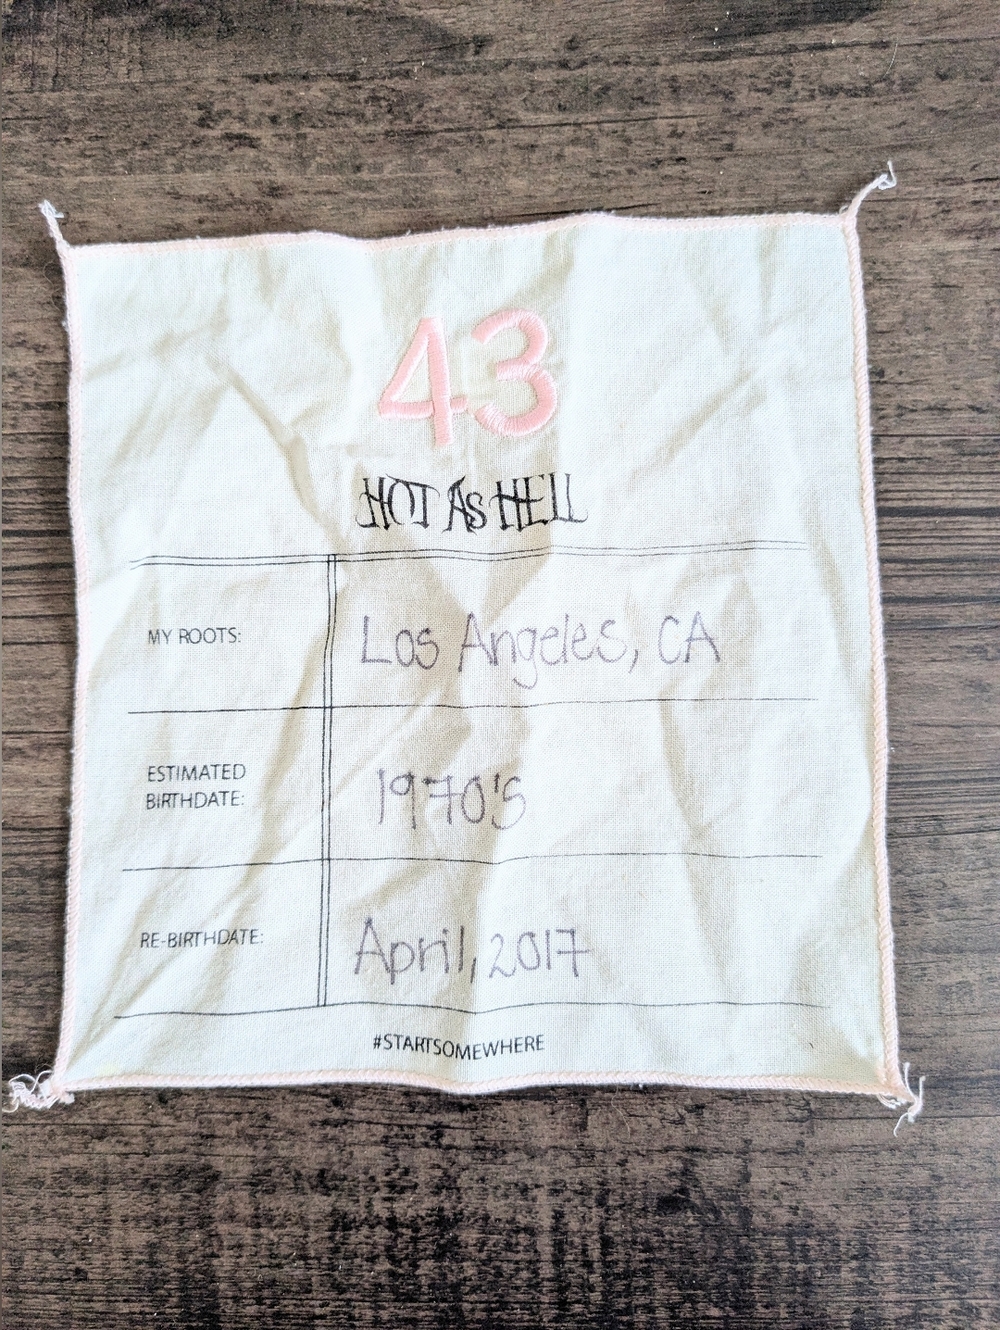 43
HOT AS HELL
MY ROOTS: Los Angeles, CA
ESTIMATED
BIRTHDATE: 1970's
RE-BIRTHDATE: April, 2017
#STARTSOMEWHERE